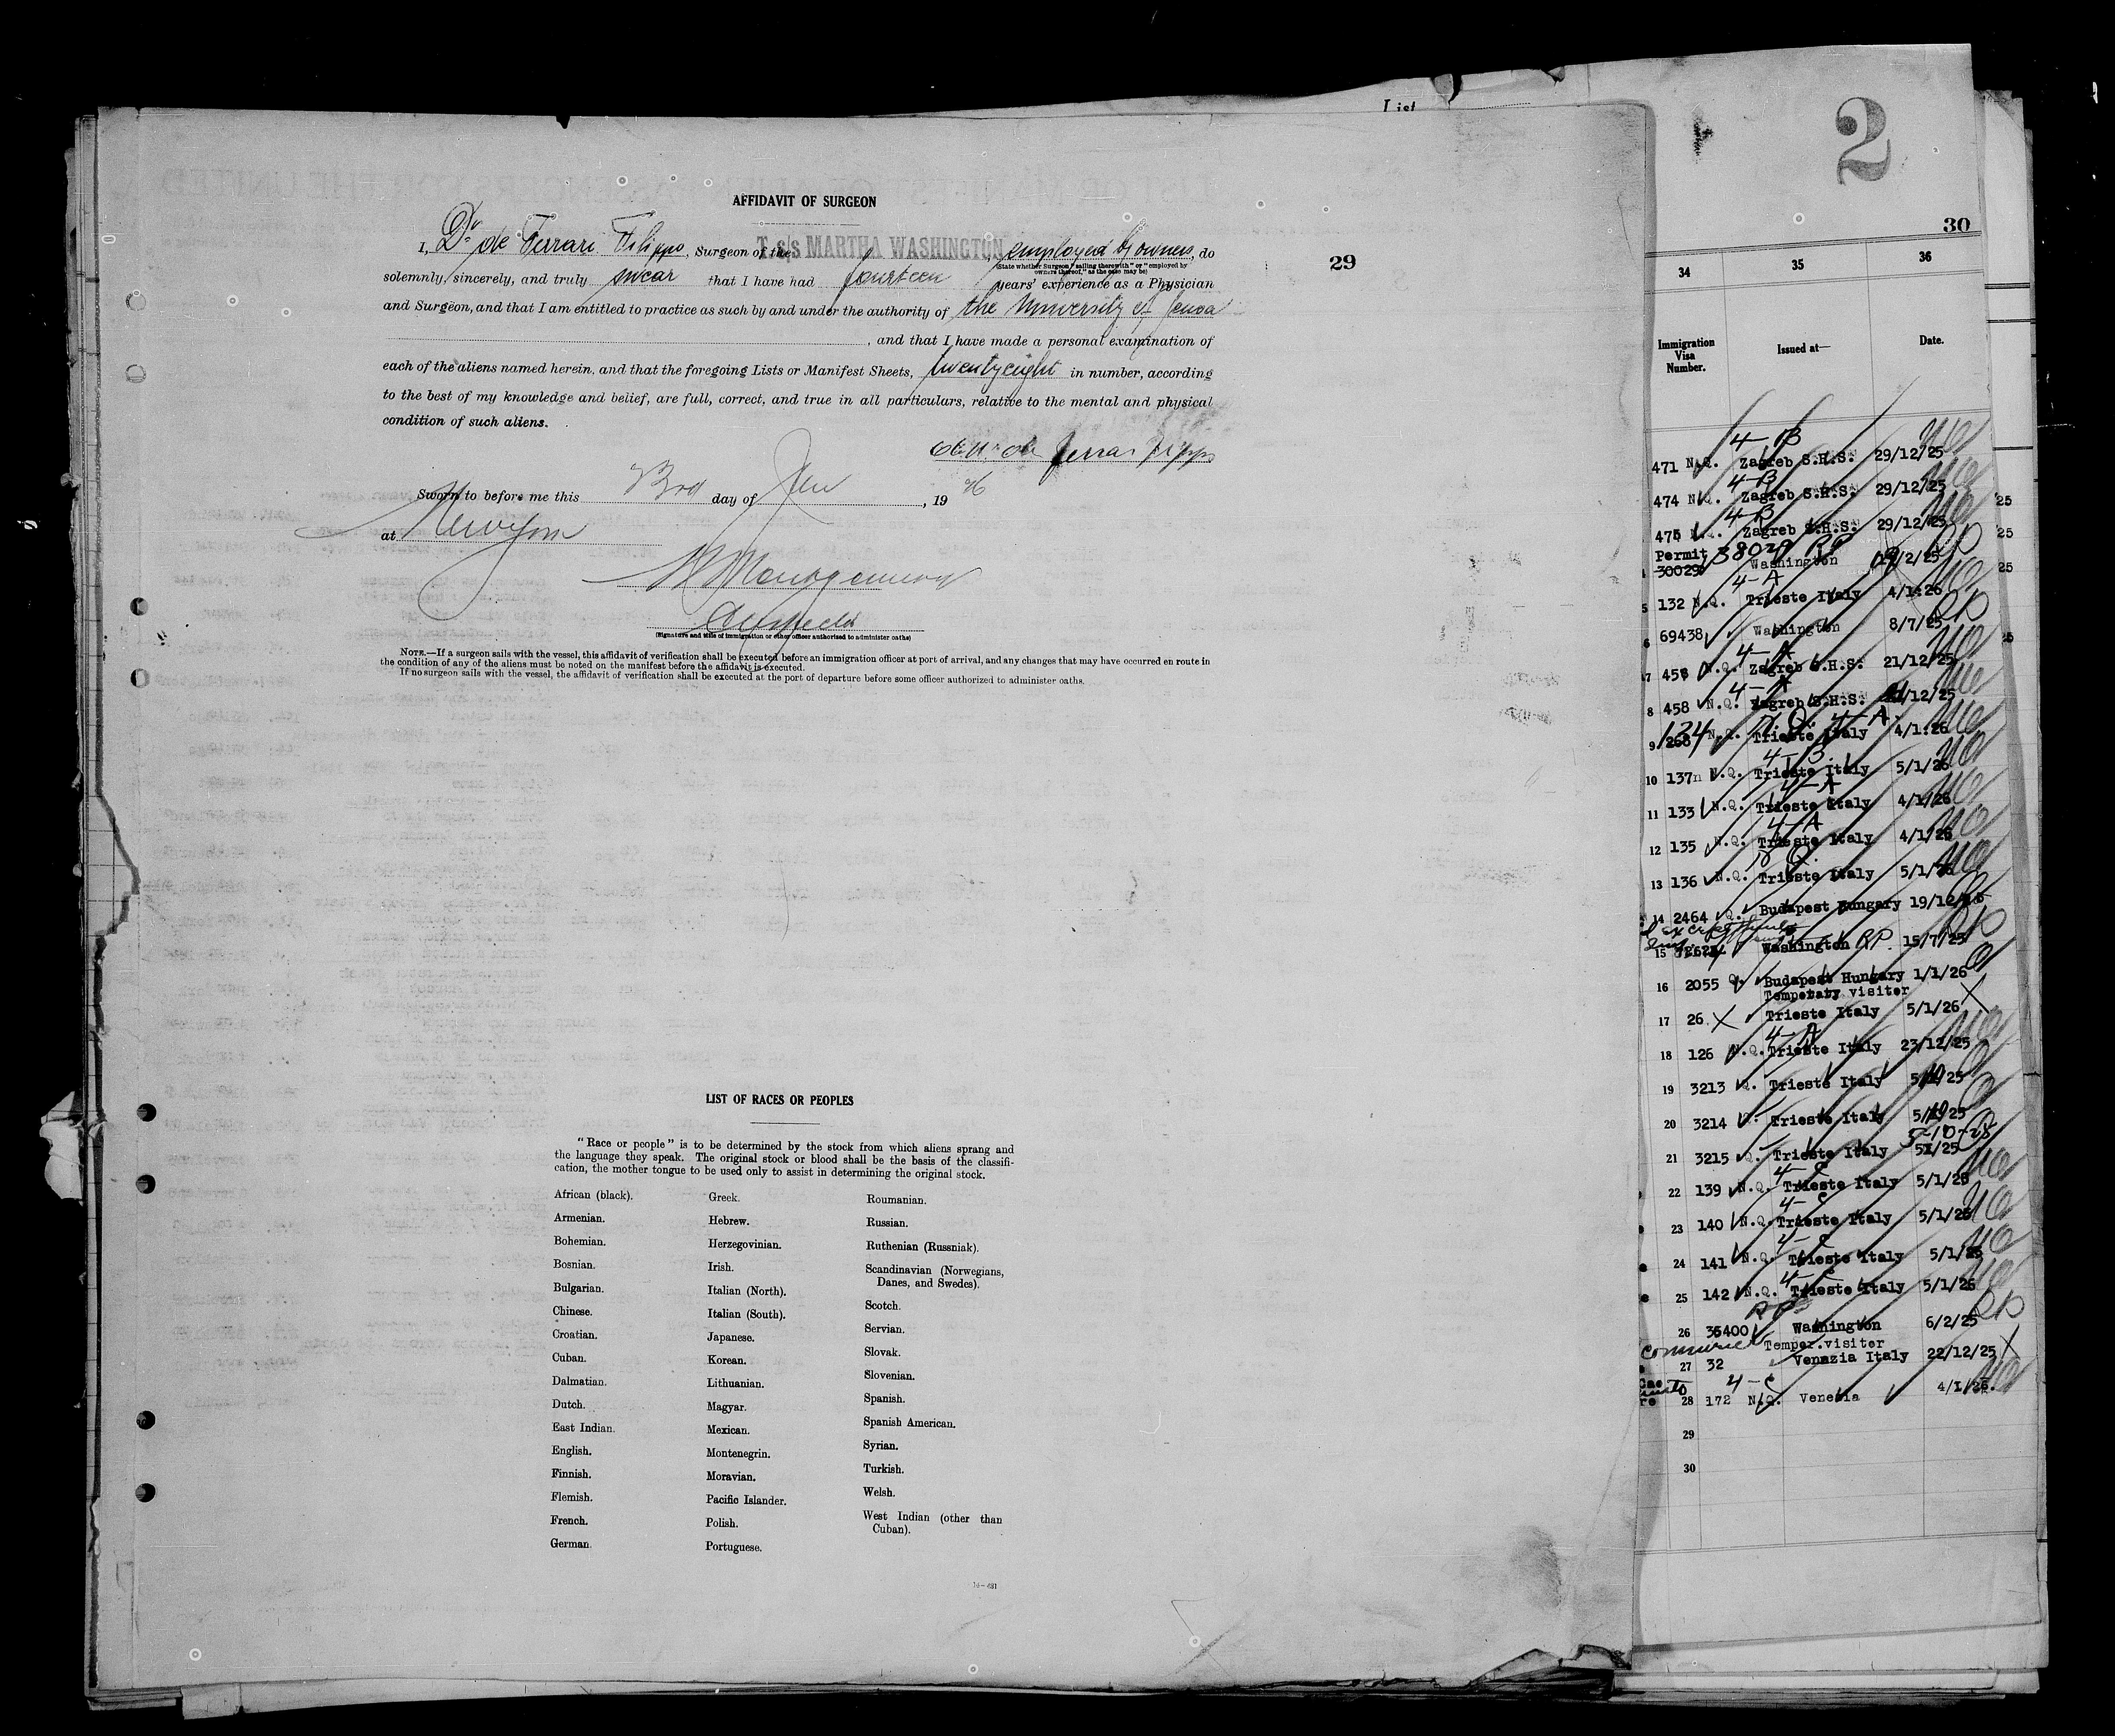 List
2
AFFIDAVIT OF SURGEON
I, Dr de Ferrari Filippo, Surgeon of the T. s/s MARTHA WASHINGTON, employed by owners, do
(State whether Surgeon "sailing therewith" or "employed by
owners thereof," as the case may be)
solemnly, sincerely, and truly swear that I have had fourteen years' experience as a Physician
and Surgeon, and that I am entitled to practice as such by and under the authority of the University of Genoa
, and that I have made a personal examination of
each of the aliens named herein, and that the foregoing Lists or Manifest Sheets, twentyeight in number, according
to the best of my knowledge and belief, are full, correct, and true in all particulars, relative to the mental and physical
condition of such aliens.
de Ferrari Filippo
Sworn to before me this 23rd day of Jan, 1926
at New York
Montgomery
Inspector
(Signature and title of immigration or other officer authorized to administer oaths)
NOTE.—If a surgeon sails with the vessel, this affidavit of verification shall be executed before an immigration officer at port of arrival, and any changes that may have occurred en route in
the condition of any of the aliens must be noted on the manifest before the affidavit is executed.
If no surgeon sails with the vessel, the affidavit of verification shall be executed at the port of departure before some officer authorized to administer oaths.
29
LIST OF RACES OR PEOPLES
"Race or people" is to be determined by the stock from which aliens sprang and
the language they speak. The original stock or blood shall be the basis of the classifi-
cation, the mother tongue to be used only to assist in determining the original stock.
African (black).
Armenian.
Bohemian.
Bosnian.
Bulgarian.
Chinese.
Croatian.
Cuban.
Dalmatian.
Dutch.
East Indian.
English.
Finnish.
Flemish.
French.
German.
Greek.
Hebrew.
Herzegovinian.
Irish.
Italian (North).
Italian (South).
Japanese.
Korean.
Lithuanian.
Magyar.
Mexican.
Montenegrin.
Moravian.
Pacific Islander.
Polish.
Portuguese.
Roumanian.
Russian.
Ruthenian (Russniak).
Scandinavian (Norwegians,
Danes, and Swedes).
Scotch.
Servian.
Slovak.
Slovenian.
Spanish.
Spanish American.
Syrian.
Turkish.
Welsh.
West Indian (other than
Cuban).
30
34 35 36
Immigration
Visa
Number.
Issued at—
Date.
4-B
471 N.Q. Zagreb S.H.S. 29/12/25
4-B
474 N.Q. Zagreb S.H.S. 29/12/25
4-B
475 N.Q. Zagreb S.H.S. 29/12/25
Permit 38029 RP
30029 Washington /2/25 RP
4-A
5 132 N.Q. Trieste Italy 4/1.26
6 69438 Washington 8/7/25 RP
4-A
7 458 N.Q. Zagreb S.H.S. 21/12/25
4-A
8 458 N.Q. Zagreb S.H.S. 21/12/25
134 N.Q. 4-A
9 N.Q. Trieste Italy 4/1.26
4-B
10 137 N.Q. Trieste Italy 5/1/26
4-A
11 133 N.Q. Trieste Italy 4/1/26
4-A
12 135 N.Q. Trieste Italy 4/1/26
13 136 N.Q. Trieste Italy 5/1/26
14 2464 Q. Budapest Hungary 19/12/25
15 Washington RP 15/7/25 RP
16 2055 Q. Budapest Hungary 1/1/26
Temporary visitor
17 26 X Trieste Italy 5/1/26 X
4-A
18 126 N.Q. Trieste Italy 23/12/25
19 3213 Q. Trieste Italy 5/10/25
20 3214 Q. Trieste Italy 5/10/25
5-10-25
21 3215 Q. Trieste Italy
4-C
22 139 N.Q. Trieste Italy 5/1/26
4-C
23 140 N.Q. Trieste Italy 5/1/26
4-C
24 141 N.Q. Trieste Italy 5/1/26
4-C
25 142 N.Q. Trieste Italy 5/1/26
RP
26 36400 Washington 6/2/25 RP
Temper.visitor
27 32 Venezia Italy 22/12/25 X
4-C
28 172 N.Q. Venezia 4/1/26.
29
30